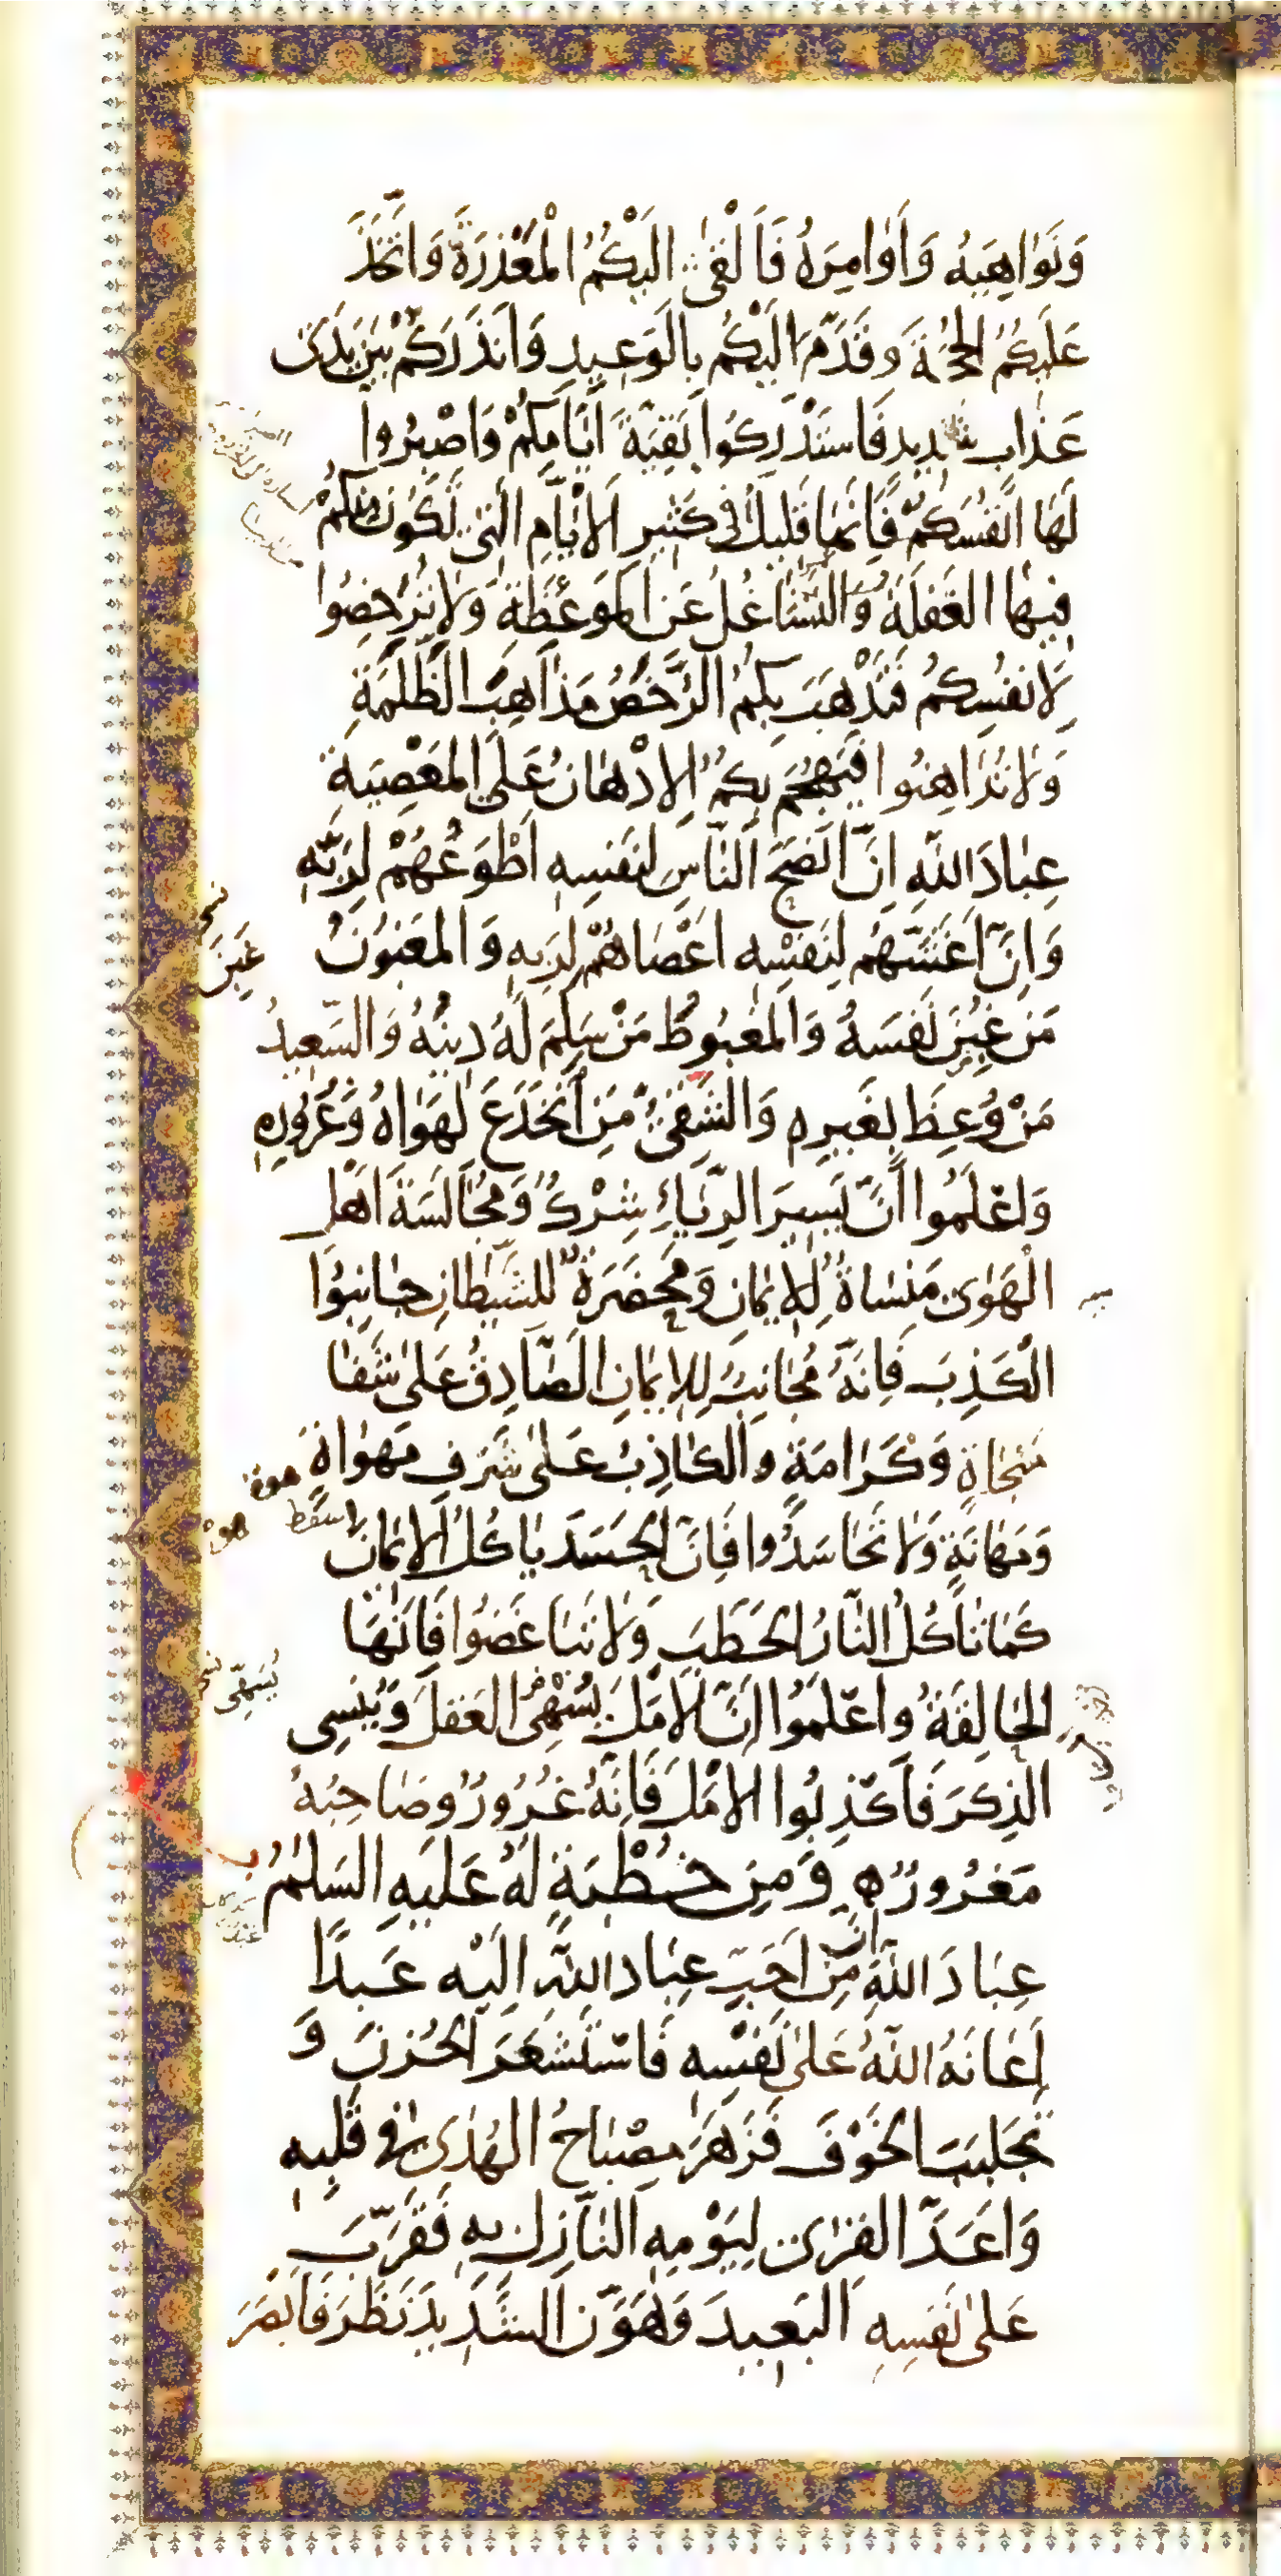 وَنَوَاهِيَهُ وَأَوَامِرَهُ فَأَلْقَى إِلَيْكُمُ الْمَعْذِرَةَ وَاتَّخَذَ
عَلَيْكُمُ الْحُجَّةَ وَقَدَّمَ إِلَيْكُم بِالْوَعِيدِ وَأَنْذَرَكُمْ بَيْنَ يَدَىْ
عَذَابٍ شَدِيدٍ فَاسْتَدْرِكُوا بَقِيَّةَ أَيَّامِكُمْ وَاصْبِرُوا
لَهَا أَنْفُسَكُمْ فَإِنَّهَا قَلِيلٌ فِي كَثِيرِ الْأَيَّامِ الَّتِي تَكُونُ مِنْكُمْ
فِيهَا الْغَفْلَةُ وَالتَّشَاغُلُ عَنِ الْمَوْعِظَةِ وَلَا تُرَخِّصُوا
لِأَنْفُسِكُمْ فَتَذْهَبَ بِكُمُ الرُّخَصُ مَذَاهِبَ الظَّلَمَةِ
وَلَا تُدَاهِنُوا فَيَهْجُمَ بِكُمُ الْإِدْهَانُ عَلَى الْمَعْصِيَةِ
عِبَادَ اللهِ إِنَّ أَنْصَحَ النَّاسِ لِنَفْسِهِ أَطْوَعُهُمْ لِرَبِّهِ
وَإِنَّ أَغَشَّهُمْ لِنَفْسِهِ أَعْصَاهُمْ لِرَبِّهِ وَالْمَغْبُونُ
غَبَنَ
مَنْ غُبِنَ نَفْسَهُ وَالْمَغْبُوطُ مَنْ سَلِمَ لَهُ دِينُهُ وَالسَّعِيدُ
مَنْ وُعِظَ بِغَيْرِهِ وَالشَّقِيُّ مَنِ انْخَدَعَ لِهَوَاهُ وَغُرُورِهِ
وَاعْلَمُوا أَنَّ يَسِيرَ الرِّيَاءِ شِرْكٌ وَمُجَالَسَةَ أَهْلِ
الْهَوَى مَنْسَاةٌ لِلْإِيمَانِ وَمَحْضَرَةٌ لِلشَّيْطَانِ جَانِبُوا
الْكَذِبَ فَإِنَّهُ مُجَانِبٌ لِلْإِيمَانِ الصَّادِقُ عَلَى شَفَا
مَنْجَاةٍ وَكَرَامَةٍ وَالْكَاذِبُ عَلَى شَرَفِ مَهْوَاةٍ
وَمَهَانَةٍ وَلَا تَحَاسَدُوا فَإِنَّ الْحَسَدَ يَأْكُلُ الْإِيمَانَ
كَمَا تَأْكُلُ النَّارُ الْحَطَبَ وَلَا تَبَاغَضُوا فَإِنَّهَا
الْحَالِقَةُ وَاعْلَمُوا أَنَّ الْأَمَلَ يُسْهِي الْعَقْلَ وَيُنْسِي
الذِّكْرَ فَأَكْذِبُوا الْأَمَلَ فَإِنَّهُ غُرُورٌ وَصَاحِبُهُ
مَغْرُورٌ ه وَمِنْ خُطْبَةٍ لَهُ عَلَيْهِ السَّلَمُ
عِبَادَ اللهِ إِنَّ مِنْ أَحَبِّ عِبَادِ اللهِ إِلَيْهِ عَبْدًا
أَعَانَهُ اللهُ عَلَى نَفْسِهِ فَاسْتَشْعَرَ الْحُزْنَ وَ
تَجَلْبَبَ الْخَوْفَ فَزَهَرَ مِصْبَاحُ الْهُدَى فِي قَلْبِهِ
وَأَعَدَّ الْقِرَى لِيَوْمِهِ النَّازِلِ بِهِ فَقَرَّبَ
عَلَى نَفْسِهِ الْبَعِيدَ وَهَوَّنَ الشَّدِيدَ نَظَرَ فَأَبْصَرَ